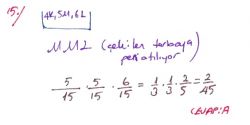 15.
4K, 5M, 6L
MML (çekilen torbaya
geri atılıyor)
5/15 · 5/15 · 6/15 = 1/3 · 1/3 · 2/5 = 2/45
CEVAP: A